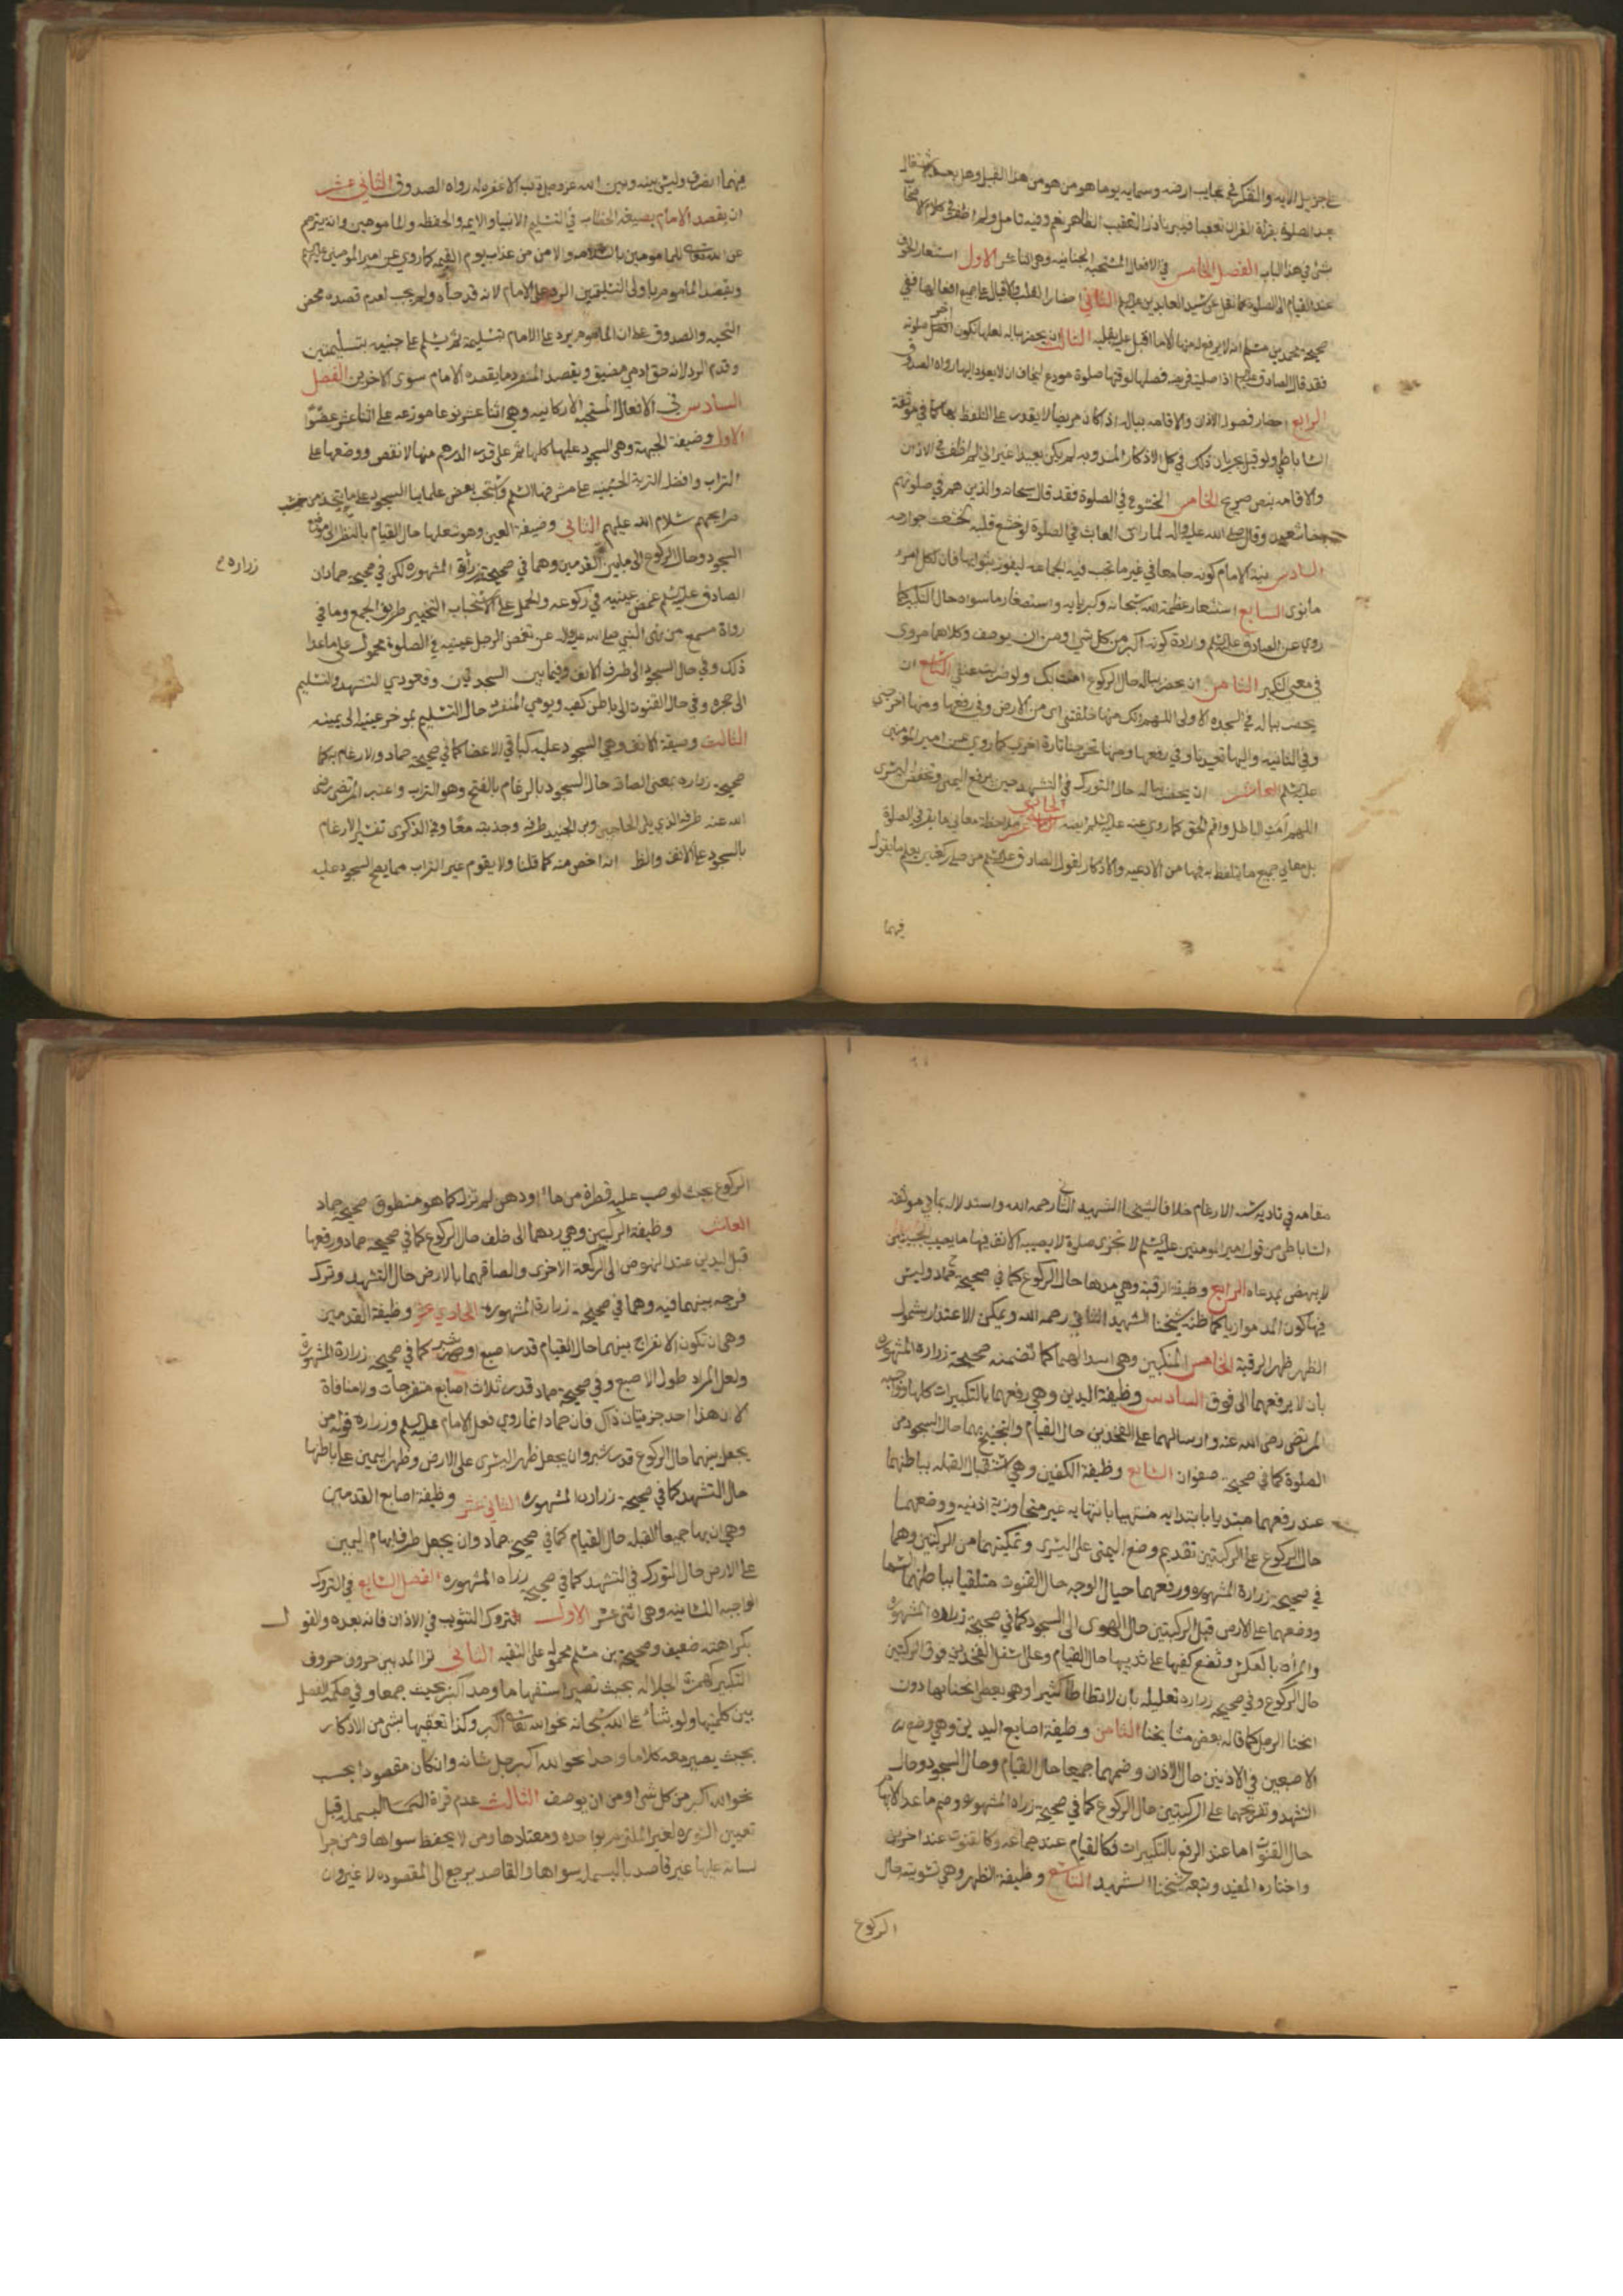 على جزيل الائه والتفكر في عجايب ارضه وسمايه وما هو من هذا القبيل وهل يعد الاشتغال
بعد الصلوة بقراة القران تعقيبا فيبر ناذر التعقيب الظاهر نعم وفيه تامل ولم اظفر في كلام الاصحاب
شئ في هذا الباب الفصل الخامس في الافعال المستحبة الجنانيه وهي اثنا عشر الاول استشعار الخوف
عند القيام الى الصلوة كما نقل عن سيد العابدين الثاني احضار القلب والاقبال على جميع افعالها ففي
صحيحة محمد بن مسلم انه لا يرفع له منها الا ما اقبل عليه بقلبه الثالث ان يحضر بباله لعلها تكون اخر صلوته
فقد قال الصادق اذا صليت فريضه فصلها لوقتها صلوة مودع يخاف ان لا يعود اليها رواه الصدوق
الرابع احضار فصول الاذان والاقامه بباله اذا كان مريضا لا يقدر على التلفظ بها كما في موثقة
الساباطي ولو قيل بجريان ذلك في كل الاذكار المندوبه لم يكن بعيدا غير اني لم اظفر في الاذان
والاقامه بنص صريح الخامس الخشوع في الصلوة فقد قال سبحانه والذين هم في صلوتهم
خاشعون وقال صلى الله عليه واله لما راى العابث في الصلوة لو خشع قلبه لخشعت جوارحه
السادس نية الامام كونه جامعا في غير ما تجب فيه الجماعه ليفوز بثوابها فان لكل امرء
ما نوى السابع استشعار عظمة الله سبحانه وكبريايه واستصغار ما سواه حال التكبير كما
روي عن الصادق عليه السلم وارادة كونه اكبر من كل شئ او من ان يوصف وكلاهما مروى
في معنى التكبير الثامن ان يحضر بباله حال الركوع امنت بك ولو ضربت عنقي التاسع ان
يحضر بباله في السجده الاولى اللهم انك منها خلقتنى اى من الارض وفي رفعها ومنها اخرجتنى
وفي الثانيه واليها تعيدنا وفي رفعها ومنها تخرجنا تارة اخرى كما روي عن امير المومنين
عليه السلم العاشر ان يحضر بباله حال التورك في التشهد حين يرفع اليمنى ويخفض اليسرى
اللهم امت الباطل واقم الحق كما روي عنه عليه السلم ايضه الحادي عشر ملاحظة معاني ما يقرا في الصلوة
بل معاني جميع ما يتلفظ به فيها من الادعيه والاذكار لقول الصادق عليه السلم من صلى ركعتين يعلم ما يقول
فيهما
فيهما انصرف وليس بينه وبين الله عز وجل ذنب الا غفره له رواه الصدوق الثاني عشر
ان يقصد الامام بصيغة الخطاب في التسليم الانبيا والايمه والحفظه والماموهين وانه يترجم
عن الله تعالى للمامومين بالسلامه والامن من عذاب يوم القيمه كما روي عن امير المومنين عليه السلم
ويقصد الماموم باولى التسليمتين الرد على الامام لانه قد حياه ولم يجب لعدم قصده محض
التحيه والصدوق على ان الماموم يرد على الامام بتسليمة ثم يسلم على جنبيه بتسليمتين
وقدم الرد لانه حق ادمي مضيق ويقصد المنفرد ما يقصده الامام سوى الاخرين الفصل
السادس في الافعال المستحبه الاركانيه وهي اثنا عشر نوعا موزعه على اثنا عشر عضوا
الاول وضيفة الجبهة وهي السجود عليها كلها ثم على قدر الدرهم منها لا نقص ووضعها على
التراب وافضل التربة الحسينيه على مشرفها السلم واستحب بعض علمايا السجود على ما يتخذ من خشب
ضرايحهم سلام الله عليهم الثاني وضيفة العين وهو شغلها حال القيام بالنظر الى موضع
السجود وحال الركوع الى ما بين القدمين وهما في صحيحة المشهورة لكن في صحيحة حماد ان
زراره
الصادق عليه السلم غمض عينيه في ركوعه والحمل على الاستحباب التخيير طريق الجمع وما في
رواة مسمع من نهى النبي صلى الله عليه واله عن تغمض الرجل عينيه في الصلوة محمول على ما عدا
ذلك وفي حال السجود الى طرف الانف وفيما بين السجدتين وقعودي التشهد والتسليم
الى حجره وفي حال القنوت الى باطن كفيه ويومي المنفرد حال التسليم بموخر عينيه الى يمينه
الثالث وضيفة الانف وهي السجود عليه كباقي الاعضا كما في صحيحة حماد والارغام به كما
صحيحة زراره بمعنى الصاقه حال السجود بالرغام بالفتح وهو التراب واعتبر المرتضى رضى
الله عنه طرفه الذي يلى الحاجبين وبن الجنيد طرفه وجذبته معا وفي الذكرى تفسير الارغام
بالسجود على الانف والظ انه اخص منه كما قلنا ولا يقوم غير التراب مما يصح السجود عليه
مقامه في تادية سنة الارغام خلافا لشيخنا الشهيد الثاني رحمه الله واستدلاله بما في موثقة
الساباطى من قول امير المومنين عليه السلم لا تجزى صلوة لا يصيب الانف فيها ما يصيب الجبين
لا ينهض بمدعاه الرابع وظيفة الرقبة وهي مدها حال الركوع كما في صحيحة حماد وليس
فيها كون المد موازيا كما ظنه شيخنا الشهيد الثاني رحمه الله ويمكن الاعتذار بشمول
الظهر ظهر الرقبة الخامس المنكبين وهي اسدالهما كما تضمنه صحيحة زرارة المشهوره
بان لا يرفعهما الى فوق السادس وظيفة اليدين وهي رفعهما بالتكبيرات كلها واوجبه
المرتضى رضى الله عنه وارسالهما على الفخذين حال القيام والتجنيح بهما حال السجود من
الصلوة كما في صحيحة صفوان السابع وظيفة الكفين وهي استقبال القبله بباطنهما
عند رفعهما مبتديا بابتدايه منتهيا بانتهايه غير متجاوزة اذنيه ووضعهما
حال الركوع على الركبتين تقديم وضع اليمنى على اليسرى وتمكينهما من الركبتين وهما
في صحيحة زرارة المشهوره ورفعهما حيال الوجه حال القنوت متلقيا بباطنهما السما
ووضعهما على الارض قبل الركبتين حال الهوى الى السجود كما في صحيحة زراره المشهوره
والمرأه بالعكس وتضع كفيها على ثدييها حال القيام وعلى اسفل الفخذين فوق الركبتين
حال الركوع وفي صحيحة زراره تعليله بان لا تطاطا كثيرا وهو يعطى انحناءها دون
انحنا الرجل كما قاله بعض مشايخنا الثامن وظيفة اصابع اليدين وهي وضع
الاصبعين في الاذنين حال الاذان وضمهما جميعا حال القيام وحال السجود وحال
التشهد وتفريجهما على الركبتين حال الركوع كما في صحيحة زراه المشهوره وضم ما عدا الابهام
حال القنوت اما عند الرفع بالتكبيرات فكالقيام عند جماعه وكالقنوت عند اخرين
واختاره المفيد وتبعه شيخنا الشهيد التاسع وظيفة الظهر وهي تسويته حال
الركوع
الركوع بحيث لو صب عليه قطرة من ماء او دهن لم تزل كما هو منطوق صحيحة حماد
العاشر وظيفة الركبتين وهي ردهما الى خلف حال الركوع كما في صحيحة حماد ورفعها
قبل اليدين عند النهوض الى الركعة الاخرى والصاقهما بالارض حال التشهد وترك
فرجه بينهما فيه وهما في صحيحة زرارة المشهورة الحادي عشر وظيفة القدمين
وهي ان تكون الانفراج بينهما حال القيام قدر اصبع او شبر كما في صحيحة زرارة المشهورة
ولعل المراد طول الاصبع وفي صحيحة حماد قدر ثلاث اصابع متفرجات ولا منافاة
لان هذا احد جزئيات ذاك فان حماد انما روي فعل الامام عليه السلم وزرارة قوله من
يجعل بينهما حال الركوع قدر شبر وان يجعل ظهر اليسرى على الارض وظهر اليمين على باطنها
حال التشهد كما في صحيحة زراره المشهوره الثاني عشر وظيفة اصابع القدمين
وهي ان بها جميعا القبله حال القيام كما في صحيحة حماد وان يجعل طرف ابهام اليمين
على الارض حال التورك في التشهد كما في صحيحة زراه المشهوره الفصل السابع في التروك
الواجبه اللسانيه وهي اثنى عشر الاول ترك التثويب في الاذان فانه بعده والقول
بكراهته ضعيف وصحيحة بن مسلم محمولة على التقيه الثاني ترا المد بين حروف حروف
التكبير كهمزة الجلاله بحيث تصير استفهاما ومد اكبر بحيث جمعا وفي حكمه الفصل
بين كلمتيها ولو بثناء على الله سبحانه نحو الله تعالى اكبر وكذا تعقيبها بشئ من الاذكار
بحيث يصير معه كلاما واحدا نحو الله اكبر جل شانه وان كان مقصودا بحسب
نحو الله اكبر من كل شئ او من ان يوصف الثالث عدم قراة البسمله قبل
تعيين السوره لغير الملتزم بواحده ومعتادها ومن لا يحفظ سواها ومن جرا
لسانه عليها غير قاصد بالبسمله سواها والقاصد يرجع الى المقصوده لا غير وان